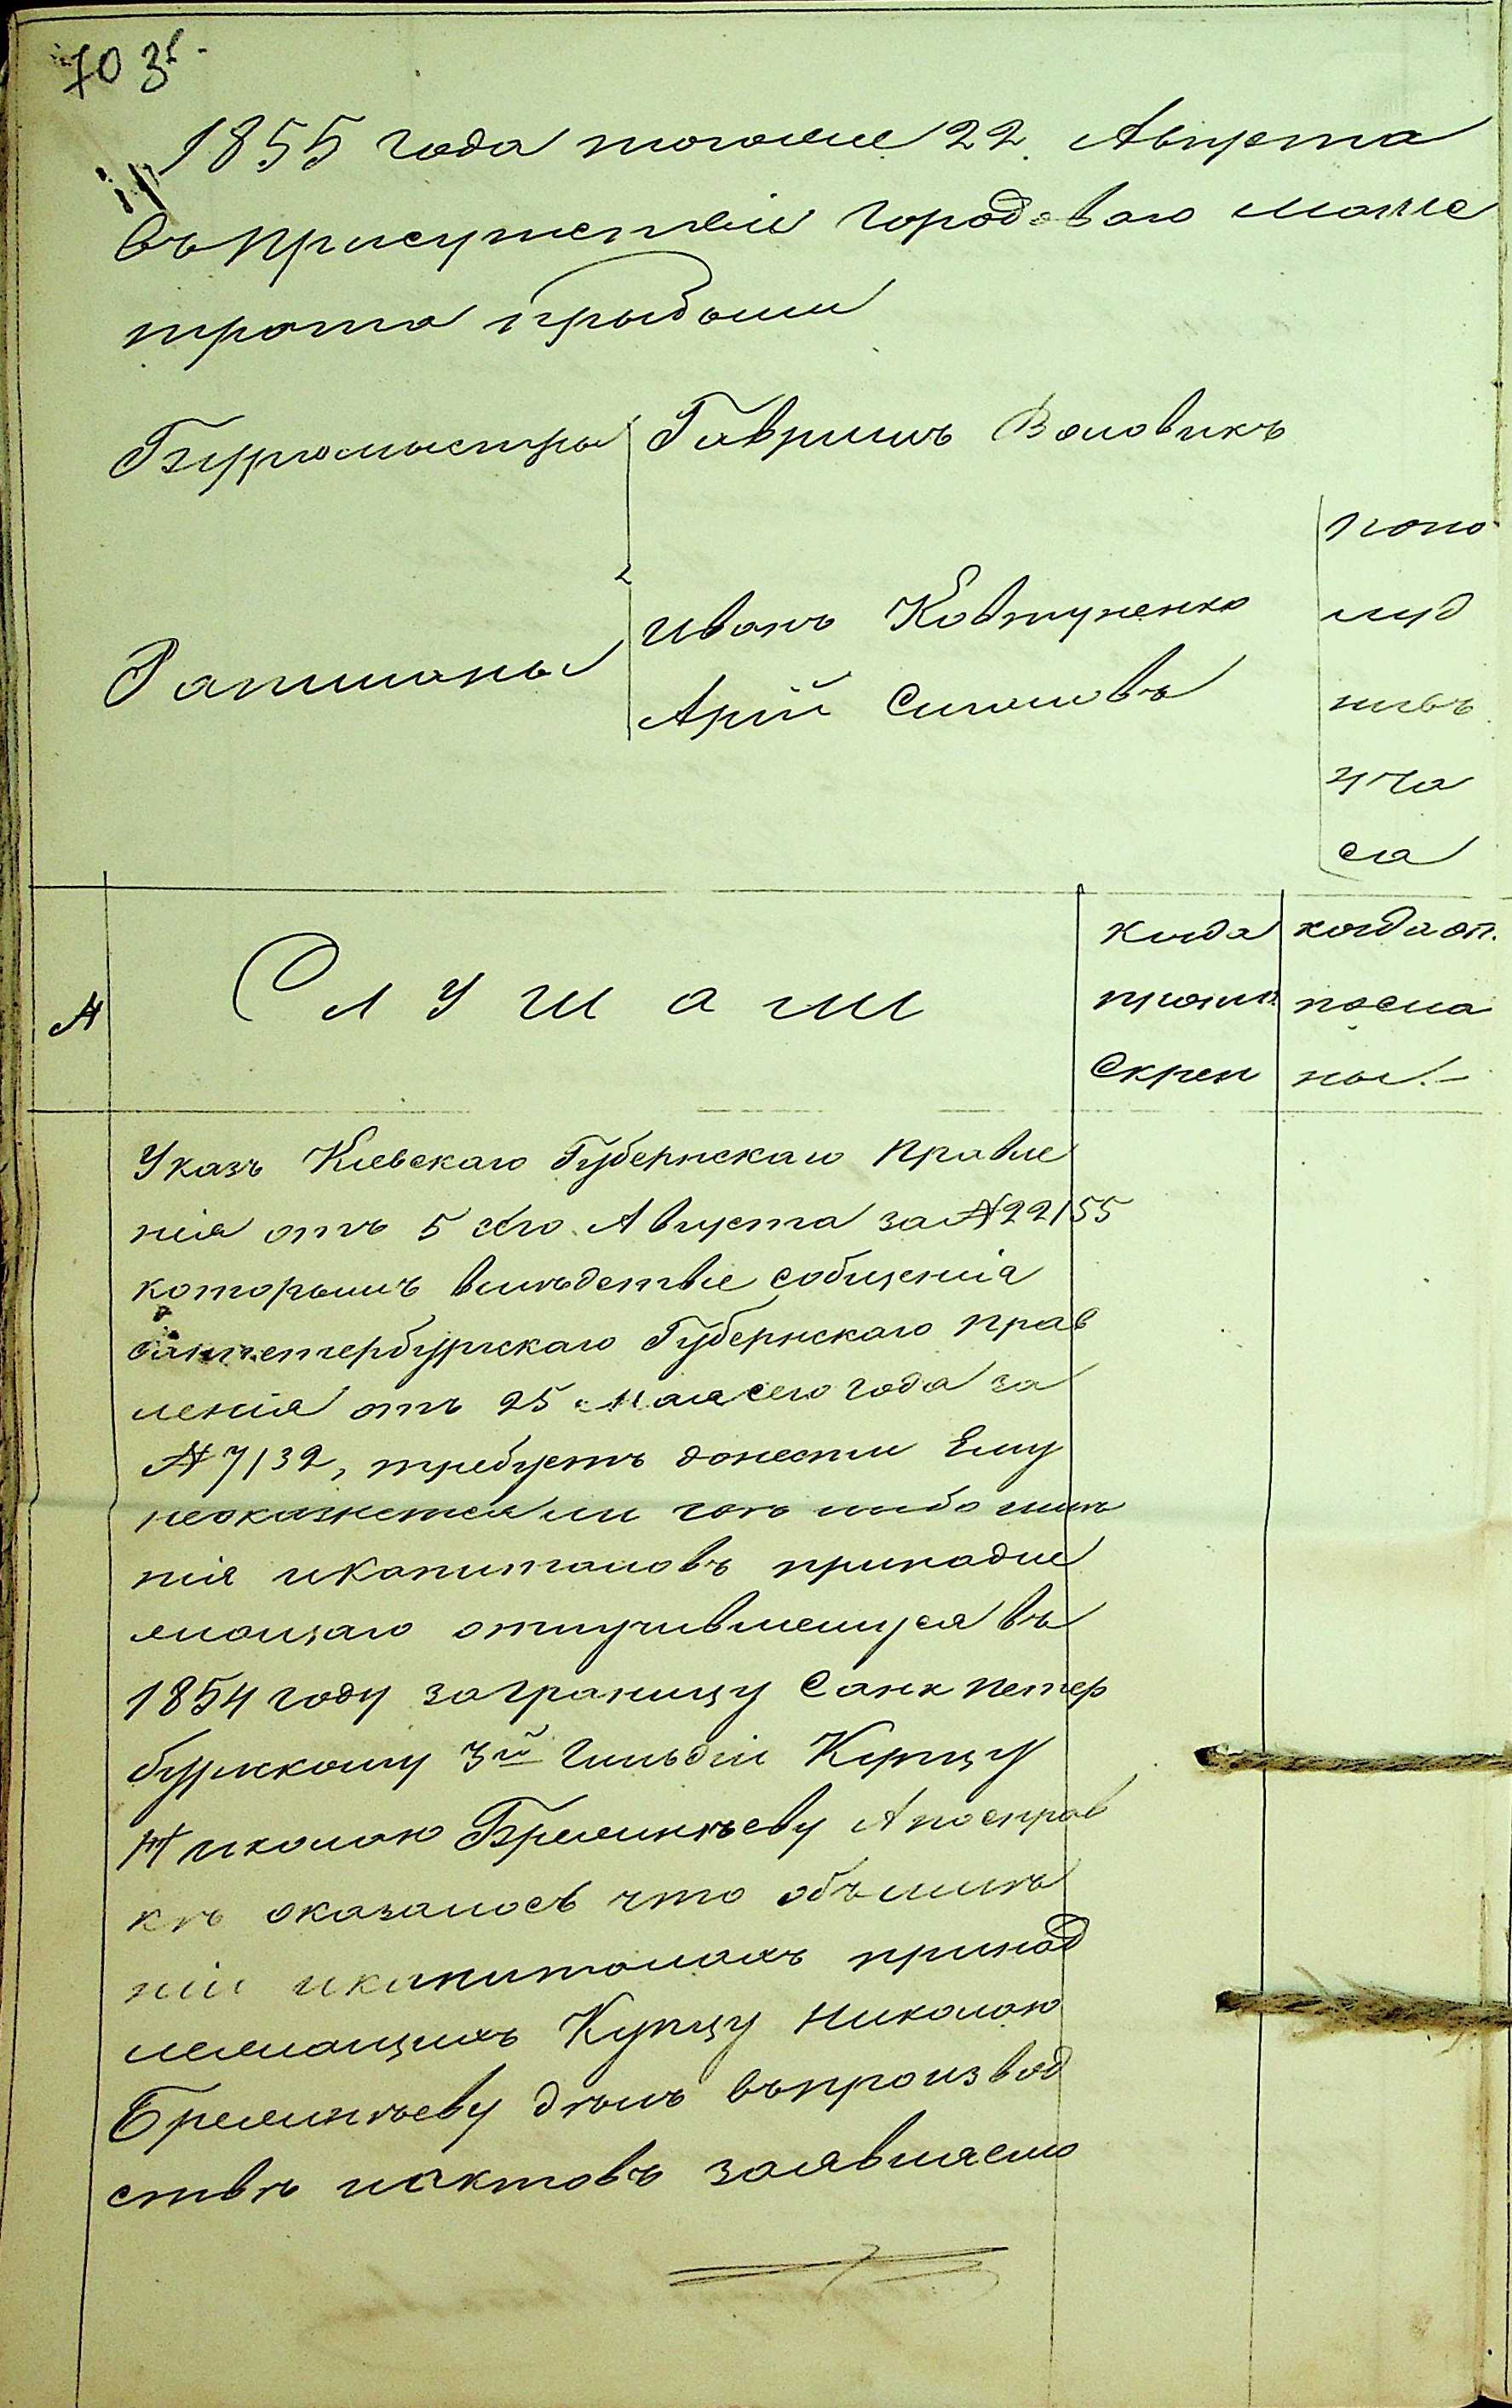 703
1855 года тогоже 22. Августа
въ присутствіи городоваго маги
трата прыбыли
Бургомыстры Гаврыилъ Воловикъ
попо
Иванъ Ковтуненко
луд
Ратманы
Арій Симоовъ
нивъ
ч часа
са
№
Слушали
когда
прочит.
скреп
когда от.
посла
ны.-
Указъ Кіевскаго Губернскаго Правле
нія отъ 5 сего Августа за № 22155
которымъ вслѣдствіе собщенія
Санктпетербургскаго Губернскаго прав
ленія отъ 25 Мая сего года за
№ 7132, требуетъ донести Ему
неокажется ли гдѣ либо имѣ
нія и Капиталовъ принадле
жащаго отлучившемуся въ
1854 году заграницу Санкпетер
бургскому 3й Гильдіи Купцу
Николаю Бремингьеву А по справ
кѣ оказалось что объ имѣ
ніи и капиталахъ принад
лежащихъ Купцу Николаю
Бремингьеву дѣлъ въ производ
ствѣ и актовъ заявляемо